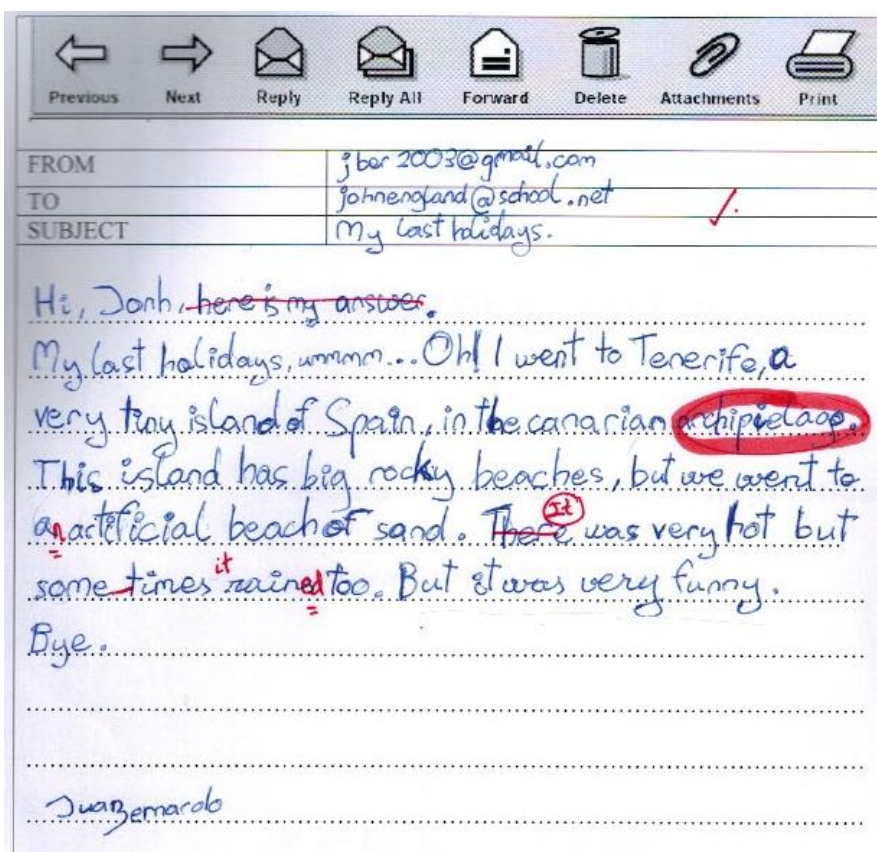 Previous Next Reply Reply All Forward Delete Attachments Print
FROM jber2003@gmail.com
TO johnengland@school.net
SUBJECT My last holidays.
Hi, Jonh, here is my answer.
My last holidays, ummmm... Oh! I went to Tenerife, a
very tiny island of Spain, in the canarian archipielago.
This island has big rocky beaches, but we went to
an actificial beach of sand. There It was very hot but
some times it rained too. But it was very funny.
Bye.
Juan Bernardo